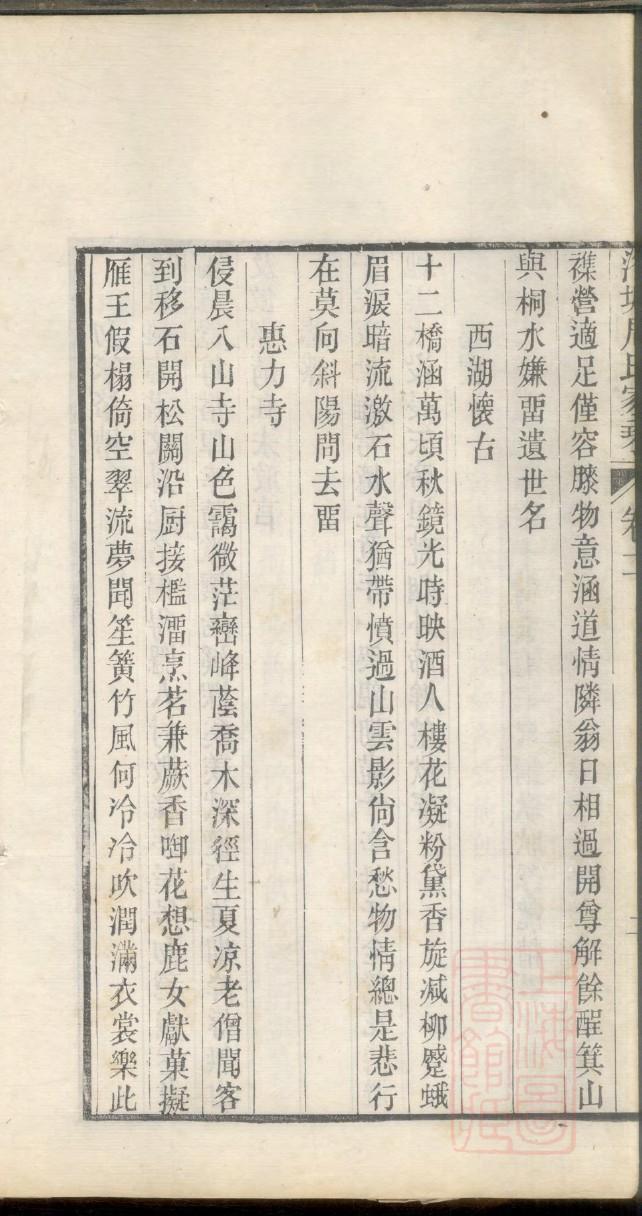 襍營適足僅容膝物意涵道情隣翁日相過開尊解餘酲箕山
與桐水嫌畱遺世名
西湖懷古
十二橋涵萬頃秋鏡光時映酒人樓花凝粉黛香旋減柳蹙蛾
眉淚暗流激石水聲猶帶憤過山雲影尙含愁物情總是悲行
在莫向斜陽問去畱
惠力寺
侵晨入山寺山色靄微茫巒峰蔭喬木深徑生夏凉老僧聞客
到移石開松關沿厨接檻澑烹茗兼蕨香啣花想鹿女獻菓擬
雁王假榻倚空翠流夢聞笙簧竹風何冷冷吹潤滿衣裳樂此